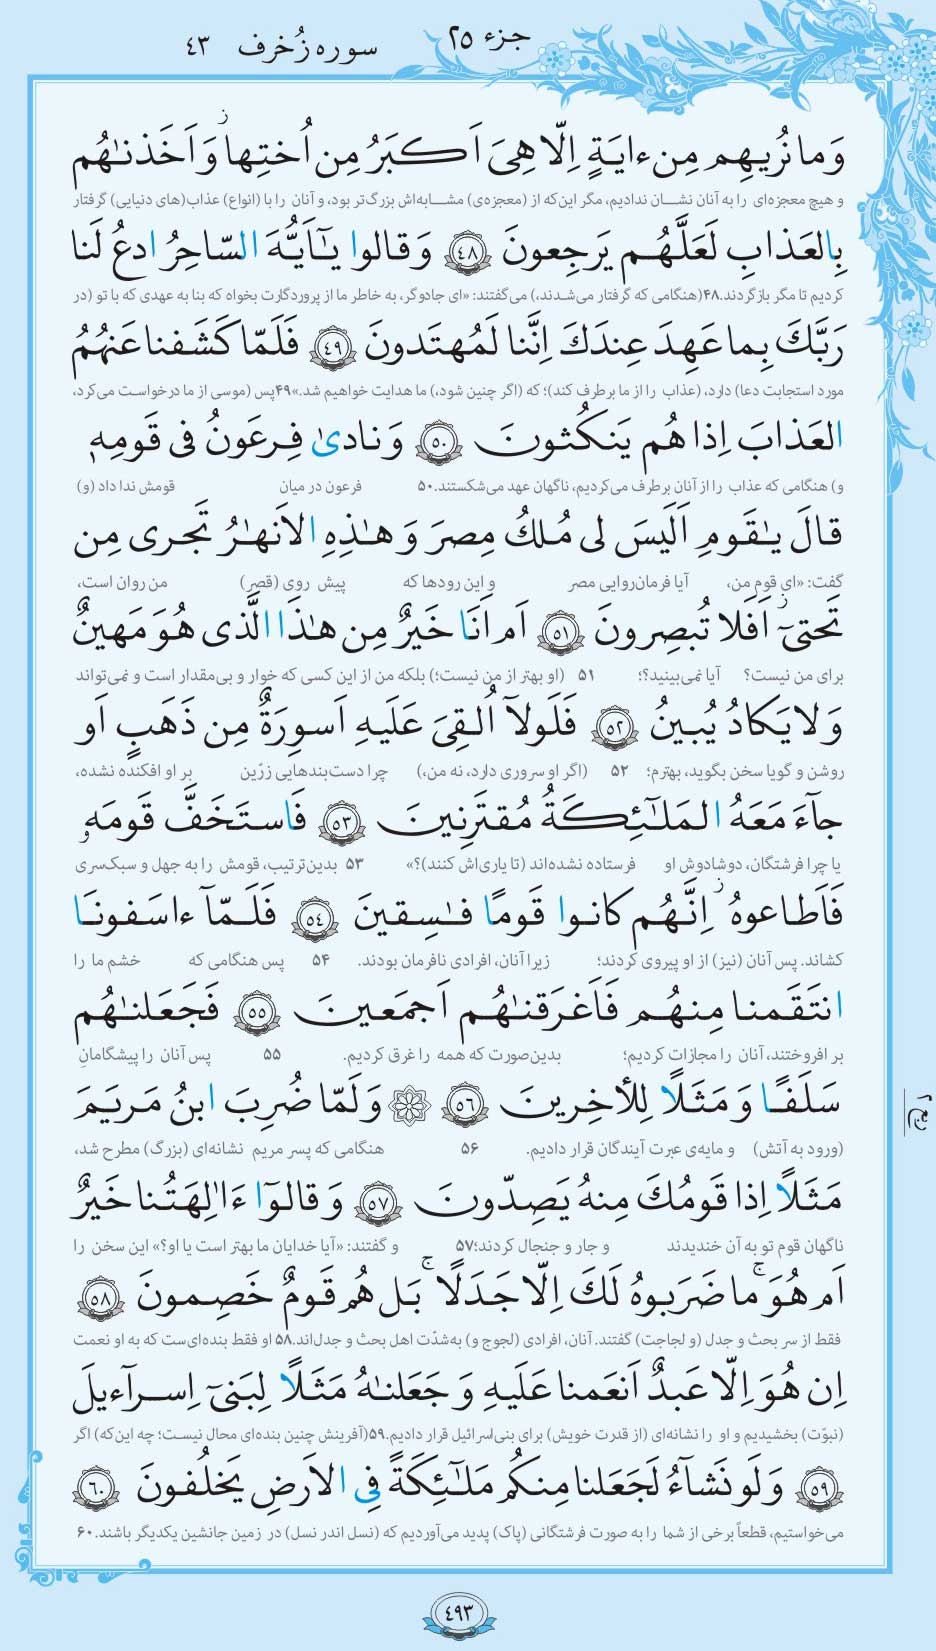 جزء ۲۵
سوره زُخرف ۴۳
وَ ما نُريهِم مِن ءايَةٍ اِلّا هِىَ اَكبَرُ مِن اُختِها ۖ وَ اَخَذنٰهُم
و هیچ معجزه‌ای را به آنان نشان ندادیم، مگر این‌که از (معجزه‌ی) مشابه‌اش بزرگ‌تر بود، و آنان را با (انواع) عذاب(های دنیایی) گرفتار
بِالعَذابِ لَعَلَّهُم يَرجِعونَ ﴿٤٨﴾ وَ قالوا يٰٓاَيُّهَ السّاحِرُ ادعُ لَنا
کردیم تا مگر بازگردند.۴۸ (هنگامی که گرفتار می‌شدند،) می‌گفتند: «ای جادوگر، به خاطر ما از پروردگارت بخواه که بنا به عهدی که با تو (در
رَبَّكَ بِما عَهِدَ عِندَكَ اِنَّنا لَمُهتَدونَ ﴿٤٩﴾ فَلَمّا كَشَفنا عَنهُمُ
مورد استجابت دعا) دارد، (عذاب را از ما برطرف کند)؛ که (اگر چنین شود،) ما هدایت خواهیم شد.»۴۹ پس (موسی از ما درخواست می‌کرد،
العَذابَ اِذا هُم يَنكُثونَ ﴿٥٠﴾ وَ نادىٰ فِرعَونُ فى قَومِهٖ
و) هنگامی که عذاب را از آنان برطرف می‌کردیم، ناگهان عهد می‌شکستند.۵۰ فرعون در میان قومش ندا داد (و)
قالَ يٰقَومِ اَلَيسَ لى مُلكُ مِصرَ وَ هٰذِهِ الاَنهٰرُ تَجرى مِن
گفت: «ای قوم من، آیا فرمان‌روایی مصر و این رودها که پیش روی (قصر) من روان است،
تَحتىٓ ۖ اَفَلا تُبصِرونَ ﴿٥١﴾ اَم اَنَا خَيرٌ مِن هٰذَا الَّذى هُوَ مَهينٌ
برای من نیست؟ آیا نمی‌بینید؟؛ ۵۱ (او بهتر از من نیست؛) بلکه من از این کسی که خوار و بی‌مقدار است و نمی‌تواند
وَ لا يَكادُ يُبينُ ﴿٥٢﴾ فَلَولآ اُلقِىَ عَلَيهِ اَسوِرَةٌ مِن ذَهَبٍ اَو
روشن و گویا سخن بگوید، بهترم؛ ۵۲ (اگر او سروری دارد، نه من،) چرا دست‌بندهایی زرّین بر او افکنده نشده،
جآءَ مَعَهُ المَلٰٓئِكَةُ مُقتَرِنينَ ﴿٥٣﴾ فَاستَخَفَّ قَومَهٗ
یا چرا فرشتگان، دوشادوش او فرستاده نشده‌اند (تا یاری‌اش کنند)؟» ۵۳ بدین‌ترتیب، قومش را به جهل و سبک‌سری
فَاَطاعوهُ ۖ اِنَّهُم كانوا قَومًا فٰسِقينَ ﴿٥٤﴾ فَلَمّآ ءاسَفونَا
کشاند. پس آنان (نیز) از او پیروی کردند؛ زیرا آنان، افرادی نافرمان بودند. ۵۴ پس هنگامی که خشم ما را
انتَقَمنا مِنهُم فَاَغرَقنٰهُم اَجمَعينَ ﴿٥٥﴾ فَجَعَلنٰهُم
بر افروختند، آنان را مجازات کردیم؛ بدین‌صورت که همه را غرق کردیم. ۵۵ پس آنان را پیشگامانِ
سَلَفًا وَ مَثَلًا لِلأخِرينَ ﴿٥٦﴾ ۞ وَ لَمّا ضُرِبَ ابنُ مَريَمَ
(ورود به آتش) و مایه‌ی عبرت آیندگان قرار دادیم. ۵۶ هنگامی که پسر مریم نشانه‌ای (بزرگ) مطرح شد،
مَثَلًا اِذا قَومُكَ مِنهُ يَصِدّونَ ﴿٥٧﴾ وَ قالوٓا ءَاٰلِهَتُنا خَيرٌ
ناگهان قوم تو به آن خندیدند و جار و جنجال کردند؛۵۷ و گفتند: «آیا خدایان ما بهتر است یا او؟» این سخن را
اَم هُوَ ۚ ما ضَرَبوهُ لَكَ اِلّا جَدَلًا ۚ بَل هُم قَومٌ خَصِمونَ ﴿٥٨﴾
فقط از سر بحث و جدل (و لجاجت) گفتند. آنان، افرادی (لجوج و) به‌شدّت اهل بحث و جدل‌اند.۵۸ او فقط بنده‌ای‌ست که به او نعمت
اِن هُوَ اِلّا عَبدٌ اَنعَمنا عَلَيهِ وَ جَعَلنٰهُ مَثَلًا لِبَنىٓ اِسرآءيلَ
(نبوّت) بخشیدیم و او را نشانه‌ای (از قدرت خویش) برای بنی‌اسرائیل قرار دادیم.۵۹ (آفرینش چنین بنده‌ای محال نیست؛ چه این‌که) اگر
﴿٥٩﴾ وَ لَو نَشآءُ لَجَعَلنا مِنكُم مَلٰٓئِكَةً فِى الاَرضِ يَخلُفونَ ﴿٦٠﴾
می‌خواستیم، قطعاً برخی از شما را به صورت فرشتگانی (پاک) پدید می‌آوردیم که (نسل اندر نسل) در زمین جانشین یکدیگر باشند. ۶۰
۴۹۳